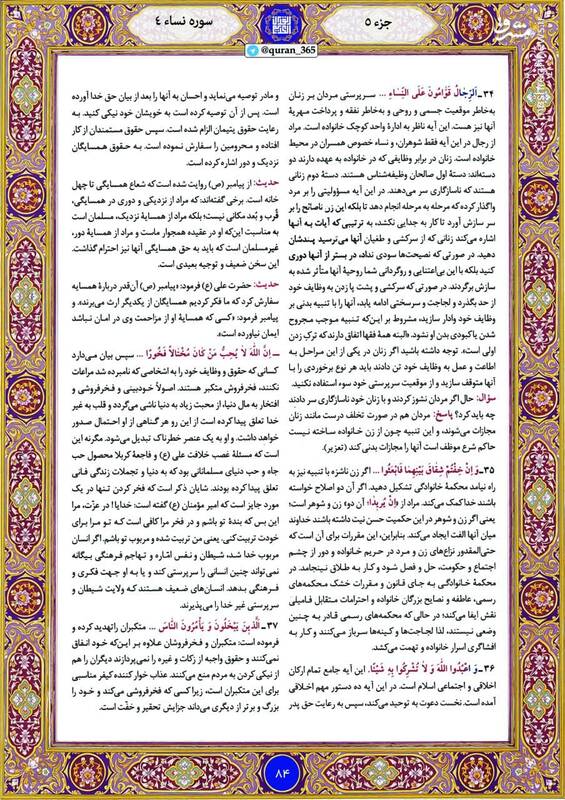 جزء ۵
سوره نساء ٤
@quran_365
مشرق
۳۴ـ اَلرِّجالُ قَوّامُونَ عَلَى النِّساءِ ... سرپرستی مردان بر زنان
به‌خاطر موقعیت جسمی و روحی و به‌خاطر نفقه و پرداخت مهریهٔ
آنها نیز هست. این آیه ناظر به ادارهٔ واحد کوچک خانواده است. مراد
از رجال در این آیه فقط شوهران، و نساء خصوص همسران در محیط
خانواده است. زنان در برابر وظایفی که در خانواده به عهده دارند دو
دسته‌اند: دستهٔ اول صالحان وظیفه‌شناس هستند. دستهٔ دوم زنانی
هستند که ناسازگاری سر می‌دهند. در این آیه مسؤولیتی را بر مرد
واگذار کرده که مرحله به مرحله انجام دهد تا بلکه این زن ناصالح را بر
سر سازش آورد تا کار به جدایی نکشد، به ترتیبی که آیات به آنها
اشاره می‌کند زنانی که از سرکشی و طغیان آنها می‌ترسید پندشان
دهید. در صورتی که نصیحت‌ها سودی نداد، در بستر از آنها دوری
کنید بلکه با این بی‌اعتنایی و روگردانی شما روحیهٔ آنها متأثر شده به
سازش برگردند. در صورتی که سرکشی و پشت پا زدن به وظایف خود
از حد بگذرد و لجاجت و سرسختی ادامه یابد، آنها را با تنبیه بدنی بر
وظایف خود وادار سازید، مشروط بر این‌که تنبیه موجب مجروح
شدن یا کبودی بدن او نشود، «البته همهٔ فقها اتفاق دارند که ترکِ زدن
اولی است». توجه داشته باشید اگر زنان در یکی از این مراحل به
اطاعت و عمل به وظایف خود تن دادند باید هر نوع برخوردی را با
آنها متوقف سازید و از موقعیت سرپرستی خود سوء استفاده نکنید.
سؤال: حال اگر مردان نشوز کردند و با زنان خود ناسازگاری سر دادند
چه باید کرد؟ پاسخ: مردان هم در صورت تخلف درست مانند زنان
مجازات می‌شوند، و این تنبیه چون از زن خانواده ساخته نیست
حاکم شرع موظف است آنها را مجازات بدنی کند (تعزیر).
۳۵ـ وَ اِنْ خِفْتُمْ شِقاقَ بَیْنِهِما فَابْعَثُوا ... اگر زن ناشزه با تنبیه نیز به
راه نیامد محکمهٔ خانوادگی تشکیل دهید. اگر آن دو اصلاح خواسته
باشند خدا کمک می‌کند. مراد از «اِنْ یُریدا» آن دو؛ زن و شوهر است؛
یعنی اگر زن و شوهر در این حکمیت حسن نیت داشته باشند خداوند
میان آنها الفت ایجاد می‌کند. بنابراین، این مقررات برای آن است که
حتی‌المقدور نزاع‌های زن و مرد در حریم خانواده و دور از چشم
اجتماع و حکومت، حل و فصل شود و کار به طلاق نینجامد. در
محکمهٔ خانوادگی به جای قانون و مقررات خشک محکمه‌های
رسمی، عاطفه و نصایح بزرگان خانواده و احترامات متقابل فامیلی
نقش ایفا می‌کند؛ در حالی که محکمه‌های رسمی قادر به چنین
وضعی نیستند، لذا لجاجت‌ها و کینه‌ها سرباز می‌کنند و کار به
افشاگری اسرار خانواده و تهمت می‌کشد.
۳۶ـ وَ اعْبُدُوا اللّهَ وَ لا تُشْرِکُوا بِهِ شَیْئًا. این آیه جامع تمام ارکان
اخلاقی و اجتماعی اسلام است. در این آیه ده دستور مهم اخلاقی
آمده است. نخست دعوت به توحید می‌کند، سپس به رعایت حق پدر
و مادر توصیه می‌نماید و احسان به آنها را بعد از بیان حق خدا آورده
است. پس از آن توصیه کرده است به خویشان خود نیکی کنید. به
رعایت حقوق یتیمان الزام شده است. سپس حقوق مستمندان از کار
افتاده و محرومین را سفارش نموده است. به حقوق همسایگان
نزدیک و دور اشاره کرده است.
حدیث: از پیامبر (ص) روایت شده است که شعاع همسایگی تا چهل
خانه است. برخی گفته‌اند: که مراد از نزدیکی و دوری در همسایگی،
قُرب و بُعد مکانی نیست؛ بلکه مراد از همسایهٔ نزدیک، مسلمان است
به مناسبت این‌که او در عقیده همجوار ماست و مراد از همسایهٔ دور،
غیرمسلمان است که باید به حق همسایگی آنها نیز احترام گذاشت.
این سخن ضعیف و توجیه بعیدی است.
حدیث: حضرت علی (ع) فرمود: «پیامبر (ص) آن‌قدر دربارهٔ همسایه
سفارش کرد که ما فکر کردیم همسایگان از یکدیگر ارث می‌برند». و
فرمود: «کسی که همسایهٔ او از مزاحمت وی در امان نباشد
ایمان نیاورده است».
ـ اِنَّ اللّهَ لا یُحِبُّ مَنْ کانَ مُخْتالًا فَخُورًا ... سپس بیان می‌دارد
کسانی که حقوق و وظایف خود را به اشخاصی که نامبرده شد مراعات
نکنند، فخرفروش متکبر هستند. اصولاً خودبینی و فخرفروشی و
افتخار به مال دنیا، از محبت زیاد به دنیا ناشی می‌گردد و قلب به غیر
خدا تعلق پیدا کرده است از این رو هر گناهی از او احتمال صدور
خواهد داشت. و او به یک عنصر خطرناک تبدیل می‌شود. مگرنه این
است که مسئلهٔ غصب خلافت علی (ع) و فاجعهٔ کربلا محصول حب
جاه و حب دنیای مسلمانانی بود که به دنیا و تجملات زندگی فانی
تعلق پیدا کرده بودند. شایان ذکر است که فخر کردن تنها در یک
مورد جایز است که امیر مؤمنان (ع) گفته است: خدایا! در عزّت، مرا
این بس که بندهٔ تو باشم و در فخر مرا کافی است که تو مرا برای
خودت تربیت کنی. یعنی من تربیت شده و مربوب تو باشم. اگر انسان
مربوب خدا شد، شیطان و نفس امّاره و تهاجم فرهنگی بیگانه
نمی‌تواند چنین انسانی را سرپرستی کند و یا به او جهت فکری و
فرهنگی بدهد. انسان‌های ضعیف هستند که ولایت شیطان و
سرپرستی غیر خدا را می‌پذیرند.
۳۷ـ اَلَّذینَ یَبْخَلُونَ وَ یَأْمُرُونَ النّاسَ ... متکبران را تهدید کرده و
فرموده است: متکبران و فخرفروشان علاوه بر این‌که خود انفاق
نمی‌کنند و حقوق واجبه از زکات و غیره را نمی‌پردازند دیگران را هم
از نیکی کردن به مردم منع می‌کنند. عذاب خوار کننده کیفر مناسبی
برای این متکبران است، زیرا کسی که فخرفروشی می‌کند و خود را
بزرگ و برتر از دیگری می‌داند جزایش تحقیر و خفّت است.
۸۴